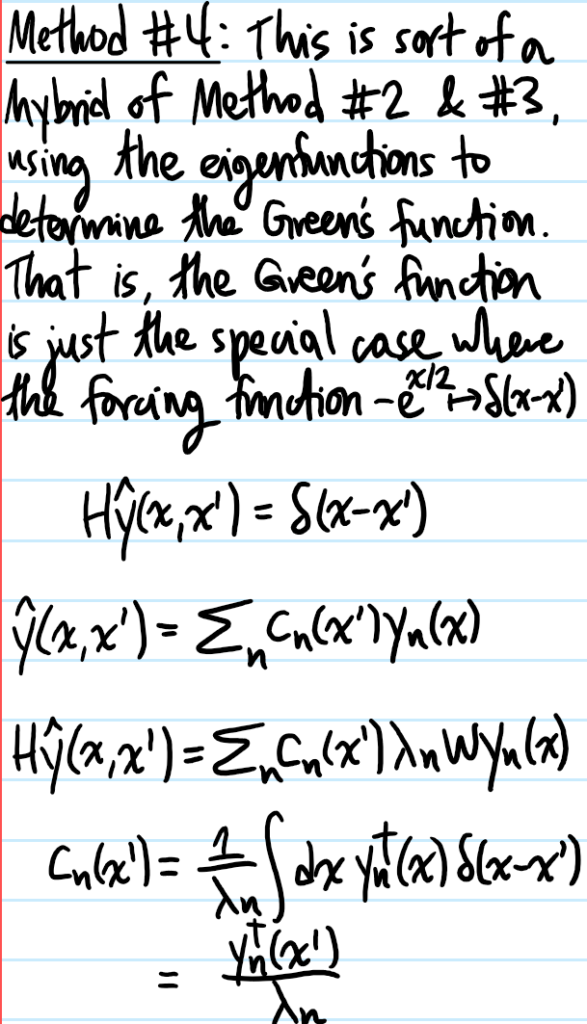 Method #4: This is sort of a
hybrid of Method #2 & #3,
using the eigenfunctions to
determine the Green's function.
That is, the Green's function
is just the special case where
the forcing function -e^{x/2} ↦ δ(x-x')
Hŷ(x,x') = δ(x-x')
ŷ(x,x') = Σₙ cₙ(x') yₙ(x)
Hŷ(x,x') = Σₙ cₙ(x') λₙ W yₙ(x)
cₙ(x') = 1/λₙ ∫ dx yₙ†(x) δ(x-x')
= yₙ†(x')/λₙ